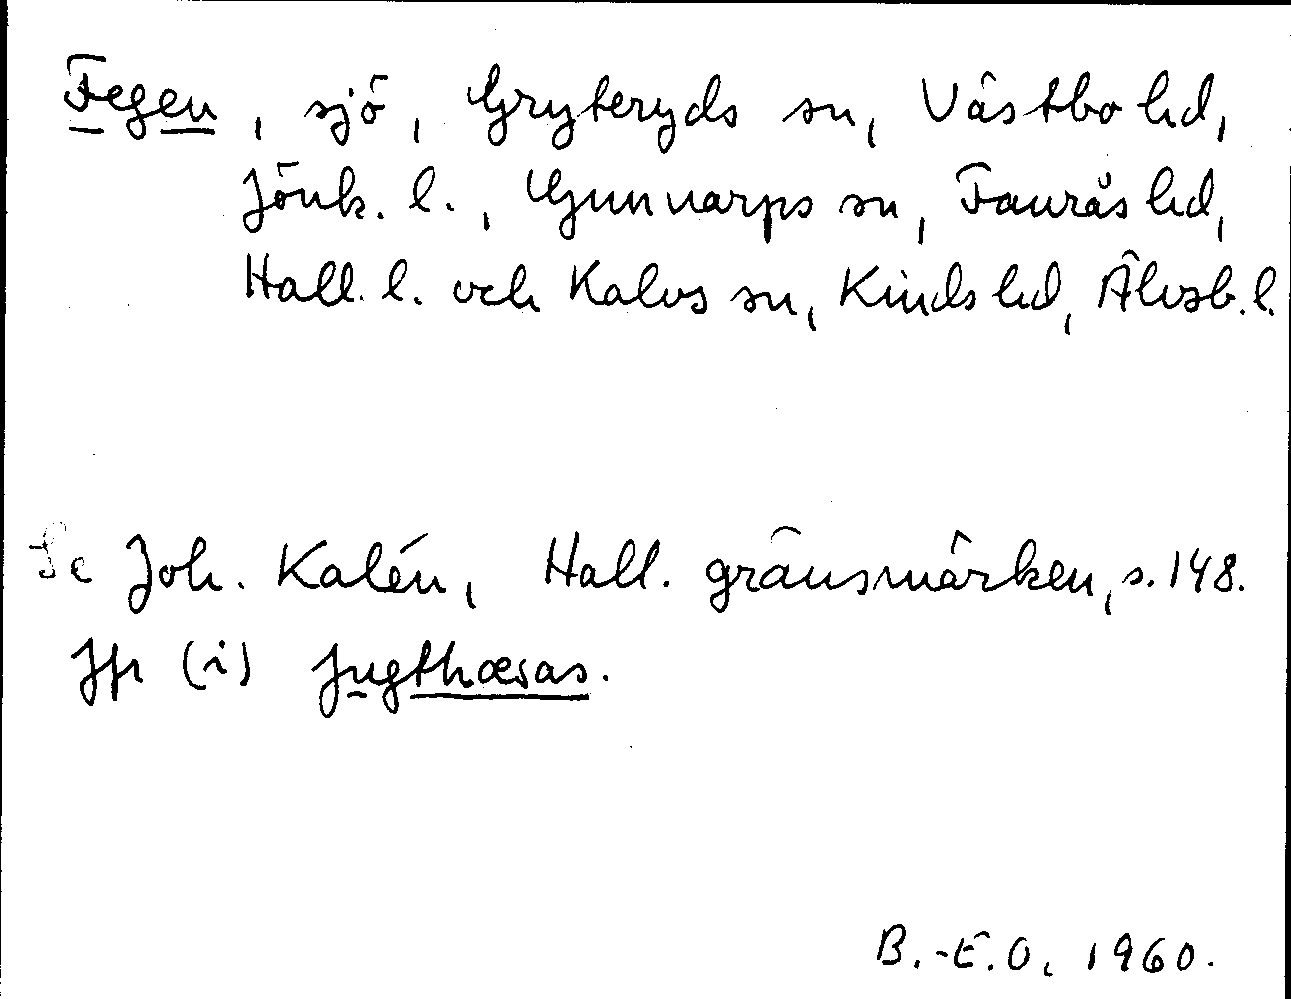 Fegen, sjö, Gryteryds sn, Västbo hd,
Jönk. l., Gunnarps sn, Faurås hd,
Hall. l. och Kalvs sn, Kinds hd, Älvsb. l.
Se Joh. Kalén, Hall. gränsmärken, s. 148.
Jfr (i) Jugthæsas.
B.-E.O. 1960.